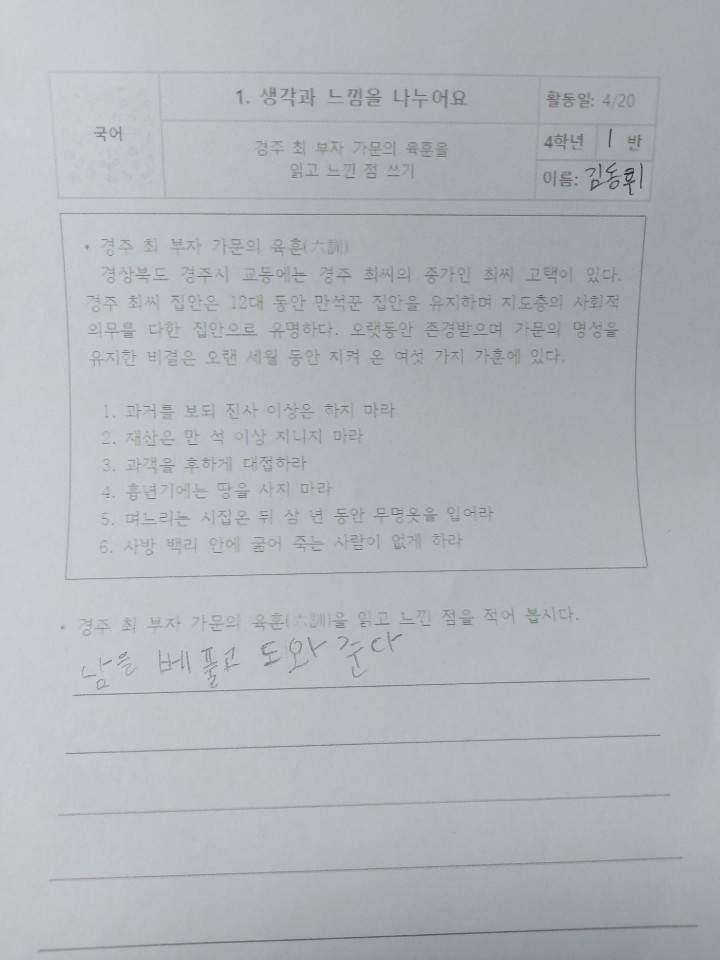 국어
1. 생각과 느낌을 나누어요
경주 최 부자 가문의 육훈을
읽고 느낀 점 쓰기
활동일: 4/20
4학년 1 반
이름: 김동휘
• 경주 최 부자 가문의 육훈(六訓)
경상북도 경주시 교동에는 경주 최씨의 종가인 최씨 고택이 있다.
경주 최씨 집안은 12대 동안 만석꾼 집안을 유지하며 지도층의 사회적
의무를 다한 집안으로 유명하다. 오랫동안 존경받으며 가문의 명성을
유지한 비결은 오랜 세월 동안 지켜 온 여섯 가지 가훈에 있다.
1. 과거를 보되 진사 이상은 하지 마라
2. 재산은 만 석 이상 지니지 마라
3. 과객을 후하게 대접하라
4. 흉년기에는 땅을 사지 마라
5. 며느리는 시집온 뒤 삼 년 동안 무명옷을 입어라
6. 사방 백리 안에 굶어 죽는 사람이 없게 하라
• 경주 최 부자 가문의 육훈(六訓)을 읽고 느낀 점을 적어 봅시다.
남을 베풀고 도와 준다